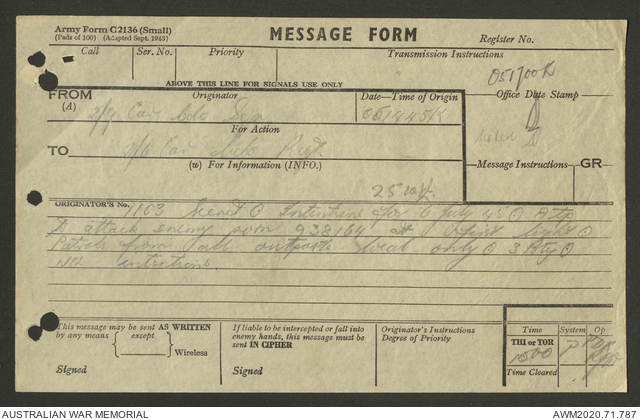 Army Form C2136 (Small)
(Pads of 100) (Adapted Sept. 1943)
MESSAGE FORM
Register No.
Call Ser. No. Priority Transmission Instructions
051700K
ABOVE THIS LINE FOR SIGNALS USE ONLY
FROM (A) Originator Date—Time of Origin Office Date Stamp
2/7 Cav Cdo
For Action
TO
(w) For Information (INFO.) Message Instructions GR
25
ORIGINATOR'S No. 1103 Secret Intentions for 6 July 45
to attack enemy posn 938164 at first light
Patrols from all outposts local only 3
Nil intentions
This message may be sent AS WRITTEN
by any means { except
Wireless
Signed
If liable to be intercepted or fall into
enemy hands, this message must be
sent IN CIPHER
Signed
Originator's Instructions
Degree of Priority
Time System Op
THI or TOR
1500 P
Time Cleared
AUSTRALIAN WAR MEMORIAL AWM2020.71.787